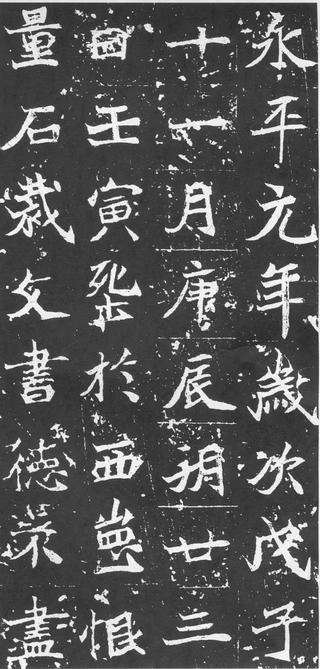 永平元年歲次戊子
十一月庚辰朔廿三
日壬寅葬於西恨
量石裁文書德盡